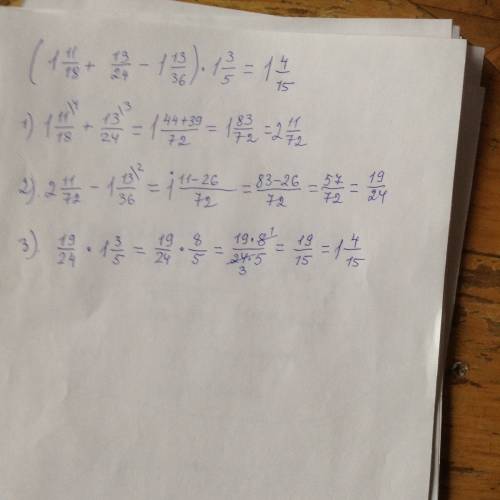 (1 11/18 + 13/24 - 1 13/36) · 1 3/5 = 1 4/15
1) 1 11/18 \4 + 13/24 \3 = 1 44+39/72 = 1 83/72 = 2 11/72
2). 2 11/72 - 1 13/36 \2 = 1 11-26/72 = 83-26/72 = 57/72 = 19/24
3). 19/24 · 1 3/5 = 19/24 · 8/5 = 19·8 1/24·5 3 = 19/15 = 1 4/15